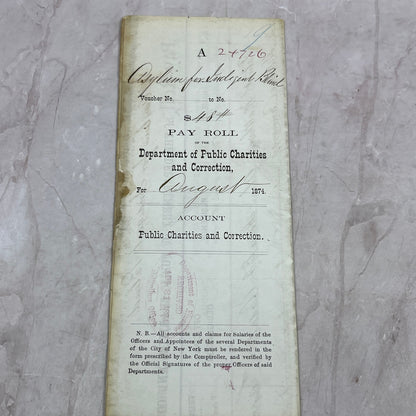 A
24726
Asylum for Indigent Blind
Voucher No. to No.
$48
PAY ROLL
OF THE
Department of Public Charities
and Correction,
For August 1874.
ACCOUNT
Public Charities and Correction.
N. B.—All accounts and claims for Salaries of the
Officers and Appointees of the several Departments
of the City of New York must be rendered in the
form prescribed by the Comptroller, and verified by
the Official Signatures of the proper Officers of said
Departments.